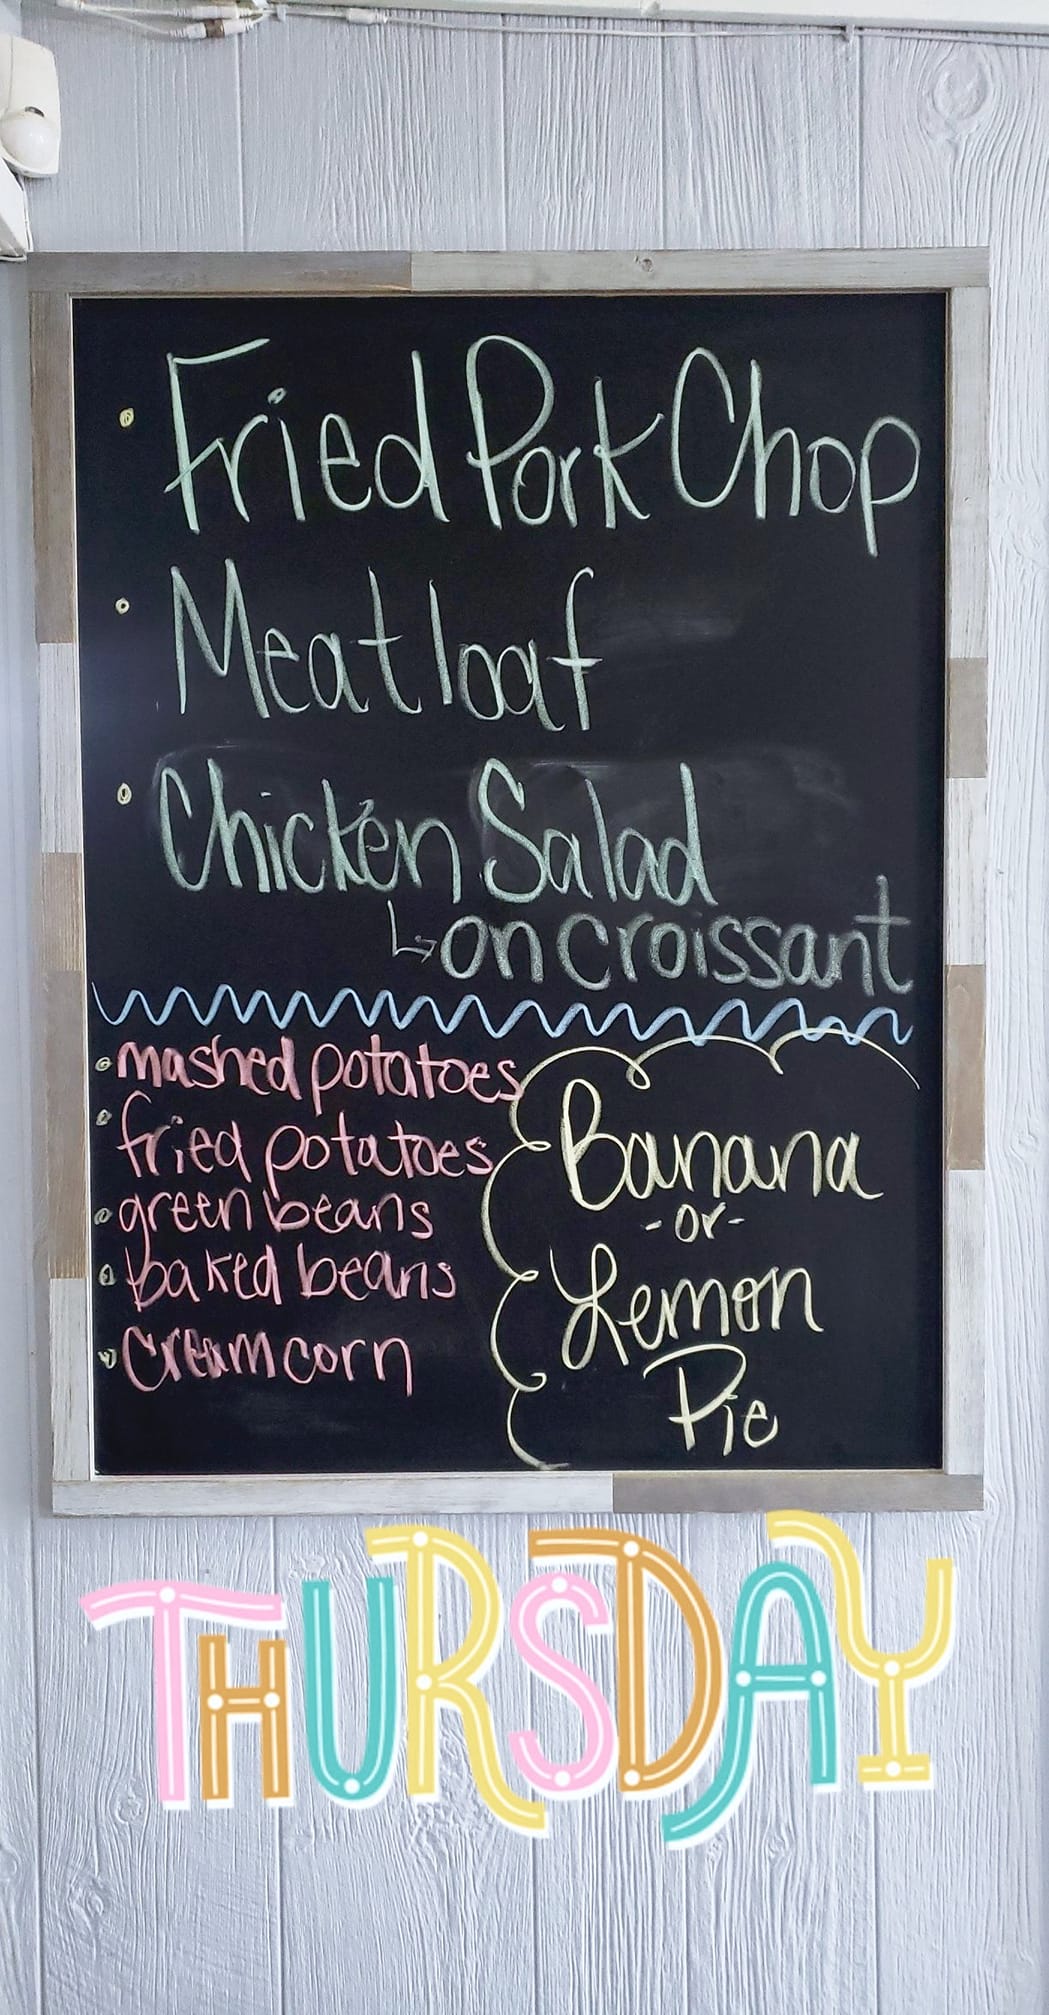 Fried Pork Chop
Meatloaf
Chicken Salad
on croissant
mashed potatoes
fried potatoes
green beans
baked beans
cream corn
Banana
-or-
Lemon
Pie
THURSDAY